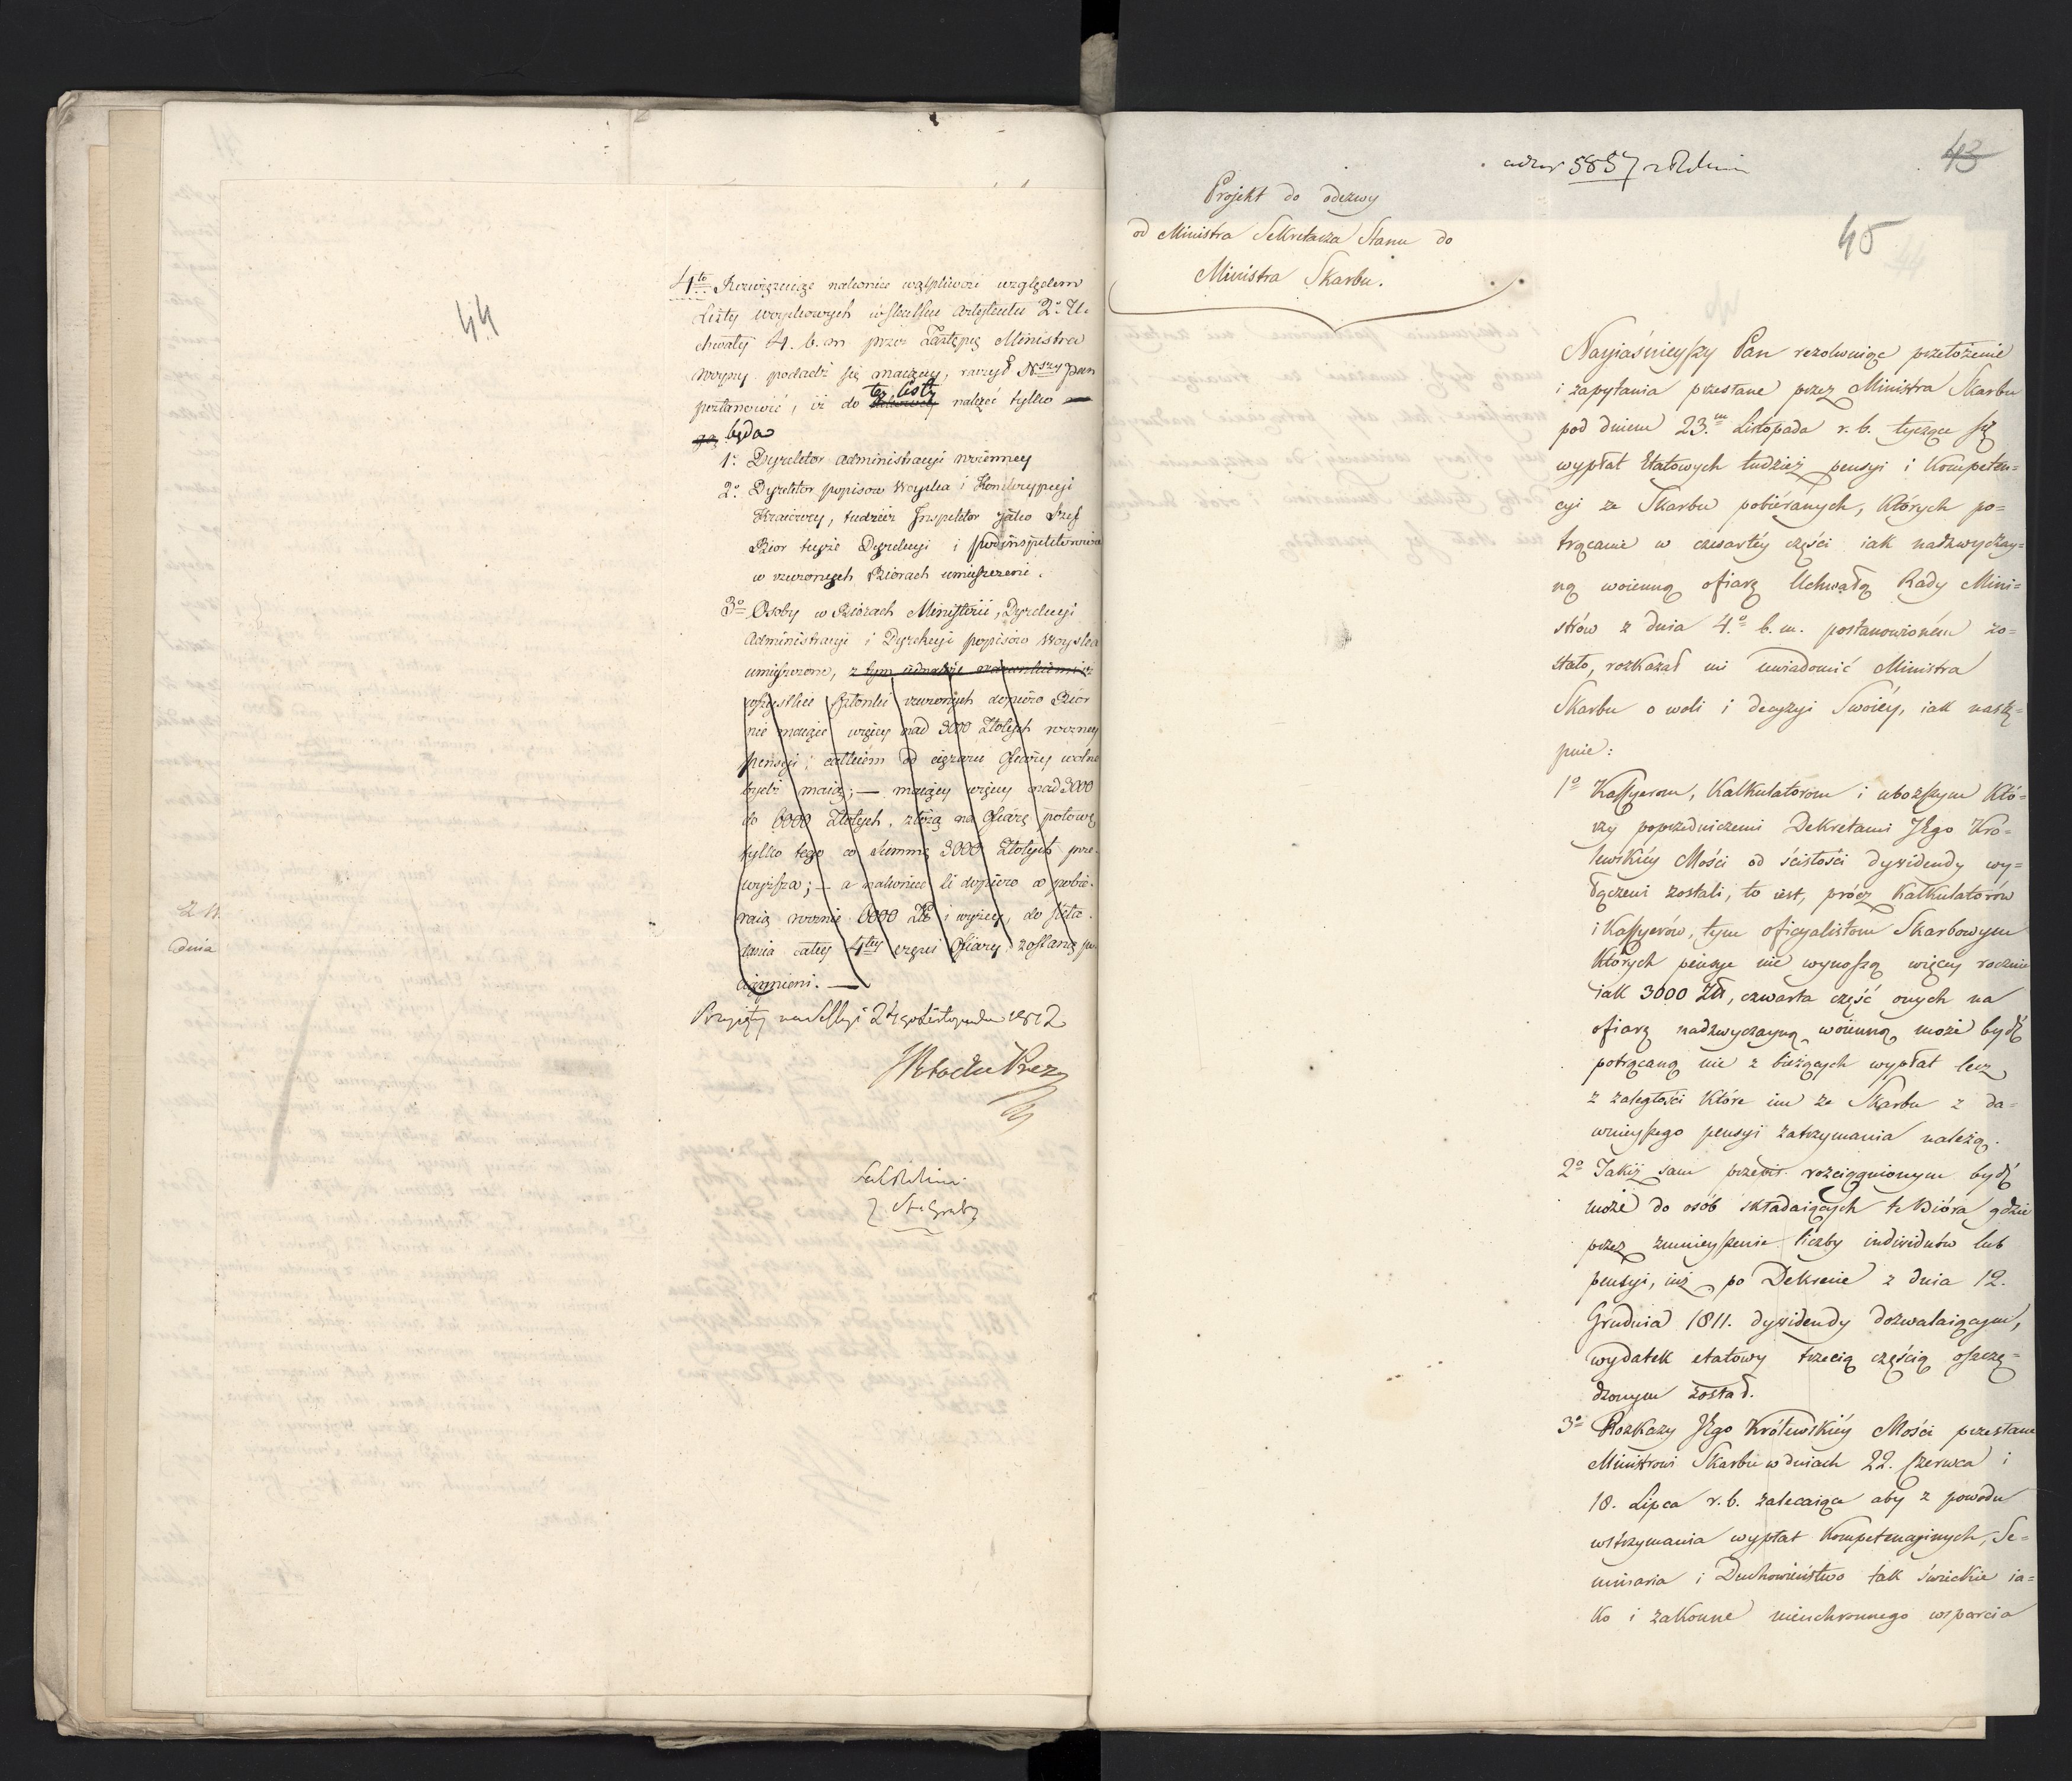 44
4to Rozwięzuiąc nakoniec wątpliwość względem
Listy woyskowych w skutku Artykułu 2o U-
chwały 4. b. m. przez Zastępcę Ministra
Woyny podadź się maiącey, raczył Nszy Pan
postanowić, iż do tey listy należeć tylko
będą
1o Dyrektor Administracyi woienney
2o Dyrektor popisów Woyska i Konskrypcyi
Kraiowey, tudzież Inspektor jako Szef
Biór teyże Dyrekcyi i podinspektorowie
w rzeczonych Biórach umieszczeni.
3o Osoby w Biórach Ministerii, Dyrekcyi
Administracyi i Dyrekcyi popisów Woyska
umieszczone, z tym
wszystkie Członki rzeczonych dopiero Biór
nie maiące więcey nad 3000 Złotych roczney
pensyi, całkiem od ciężaru Ofiary wolne
bydź maią; — maiący więcey nad 3000
do 6000 Złotych, złożą na Ofiarę połowę
tylko tego co Summę 3000 Złotych prze-
wyższa; — a nakoniec ci dopiero co pobie-
raią rocznie 6000 Zł i wyżey, do skła-
dania całey 4tey części Ofiary zostaną po-
ciągnieni. —
Przyięty na Sessyi 24go Listopada 1812
Z W.
dnia
43
5857
45
Projekt do odezwy
od Ministra Sekretarza Stanu do
Ministra Skarbu.
Nayiaśnieyszy Pan rezolwuiąc przełożenie
i zapytania przesłane przez Ministra Skarbu
pod dniem 23.m Listopada r. b. tyczące się
wypłat Etatowych tudzież pensyi i Kompeten=
cyi ze Skarbu pobiéranych, których po=
trącanie w czwartéy części iak nadzwyczay=
ną woienną ofiarę Uchwałą Rady Mini=
strów z dnia 4.o b. m. postanowioném zo=
stało, rozkazał mi uwiadomić Ministra
Skarbu o woli i decyzyi Swoiéy, iak nastę=
puie:
1o Kassyerom, Kalkulatorom i uboższym któ=
rzy poprzedniczemi Dekretami JEgo Kró=
lewskiéy Mości od ścisłości dywidendy wy=
łączeni zostali, to iest, prócz Kalkulatorów
i Kassyerów, tym oficyalistom Skarbowym
których pensye nie wynoszą więcey rocznie
iak 3000 Zł, czwarta część onych na
ofiarę nadzwyczayną woienną może bydź
potrącaną nie z bieżących wypłat lecz
z zaległości które im ze Skarbu z da=
wnieyszego pensyi zatrzymania należą.
2o Takiż sam przepis rozciągnionym bydź
może do osób składaiących te Bióra gdzie
przez zmnieyszenie liczby individuów lub
pensyi, iuż po Dekrecie z dnia 12.
Grudnia 1811. dywidendy dozwalaiącym,
wydatek etatowy trzecią częścią oszczę=
dzonym został.
3o Rozkazy JEgo Królewskiéy Mości przesłane
Ministrowi Skarbu w dniach 22. Czerwca i
18. Lipca r. b. zalecaiące aby z powodu
wstrzymania wypłat Kompetencyinych, Se=
minaria i Duchowieństwo tak świeckie ia=
ko i zakonne nieuchronnego wsparcia